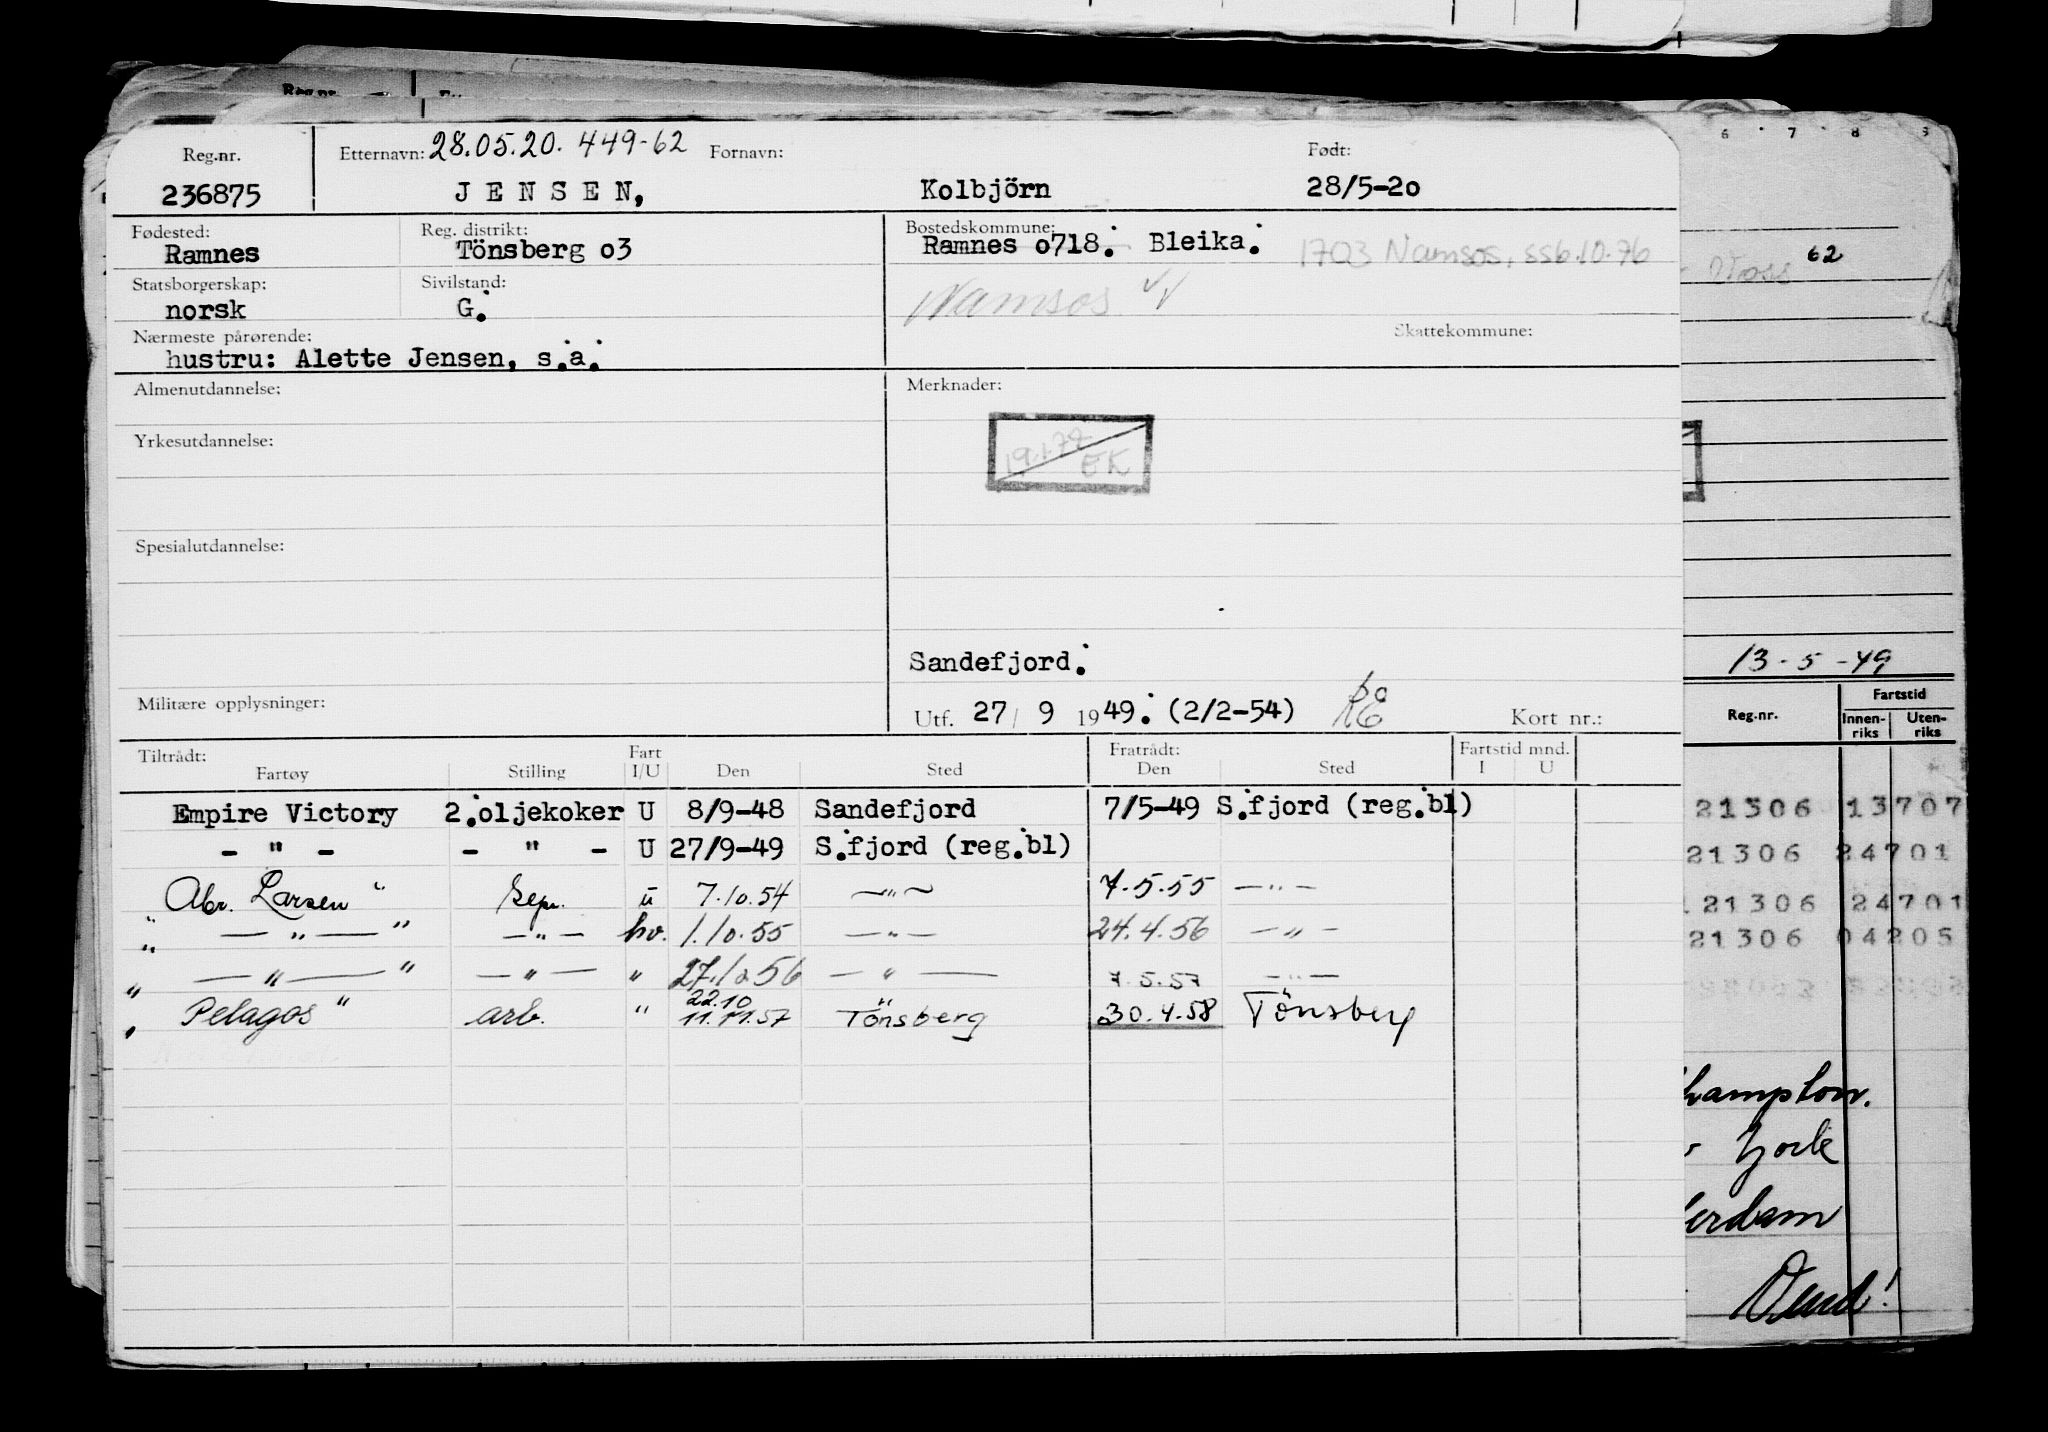 Reg.nr. Etternavn: 28.05.20. 449-62 Fornavn: Født:
236875 JENSEN, Kolbjörn 28/5-20
Fødested: Reg. distrikt: Bostedskommune:
Ramnes Tönsberg 03 Ramnes 0718. Bleika. 1703 Namsos, ssb.10.76
Statsborgerskap: Sivilstand:
norsk G. Namsos
Nærmeste pårørende: Skattekommune:
hustru: Alette Jensen, s.a.
Almenutdannelse: Merknader:
19.1.77 EK
Yrkesutdannelse:
Spesialutdannelse:
Sandefjord.
Militære opplysninger: Utf. 27/ 9 1949. (2/2-54) Kort nr.:
Tiltrådt: Fart Fratrådt: Fartstid mnd.
Fartøy Stilling I/U Den Sted Den Sted I U
Empire Victory 2.oljekoker U 8/9-48 Sandefjord 7/5-49 S.fjord (reg.bl)
- " - - " - U 27/9-49 S.fjord (reg.bl)
" Abr. Larsen" u 7.10.54 -"- 7.5.55 -"-
" -"- " -"- hv. 1.10.55 -"- 24.4.56 -"-
" -"- " -"- " 27.10 56 -"- 7.5.57 -"-
" Pelagos" arb. " 22.10 11.11.57 Tönsberg 30.4.58 Tönsberg
6 7 8
62
13-5-49
Reg.nr. Fartstid
Innen-riks Uten-riks
21306 13707
21306 24701
21306 24701
21306 04205
hampton.
York
erdam